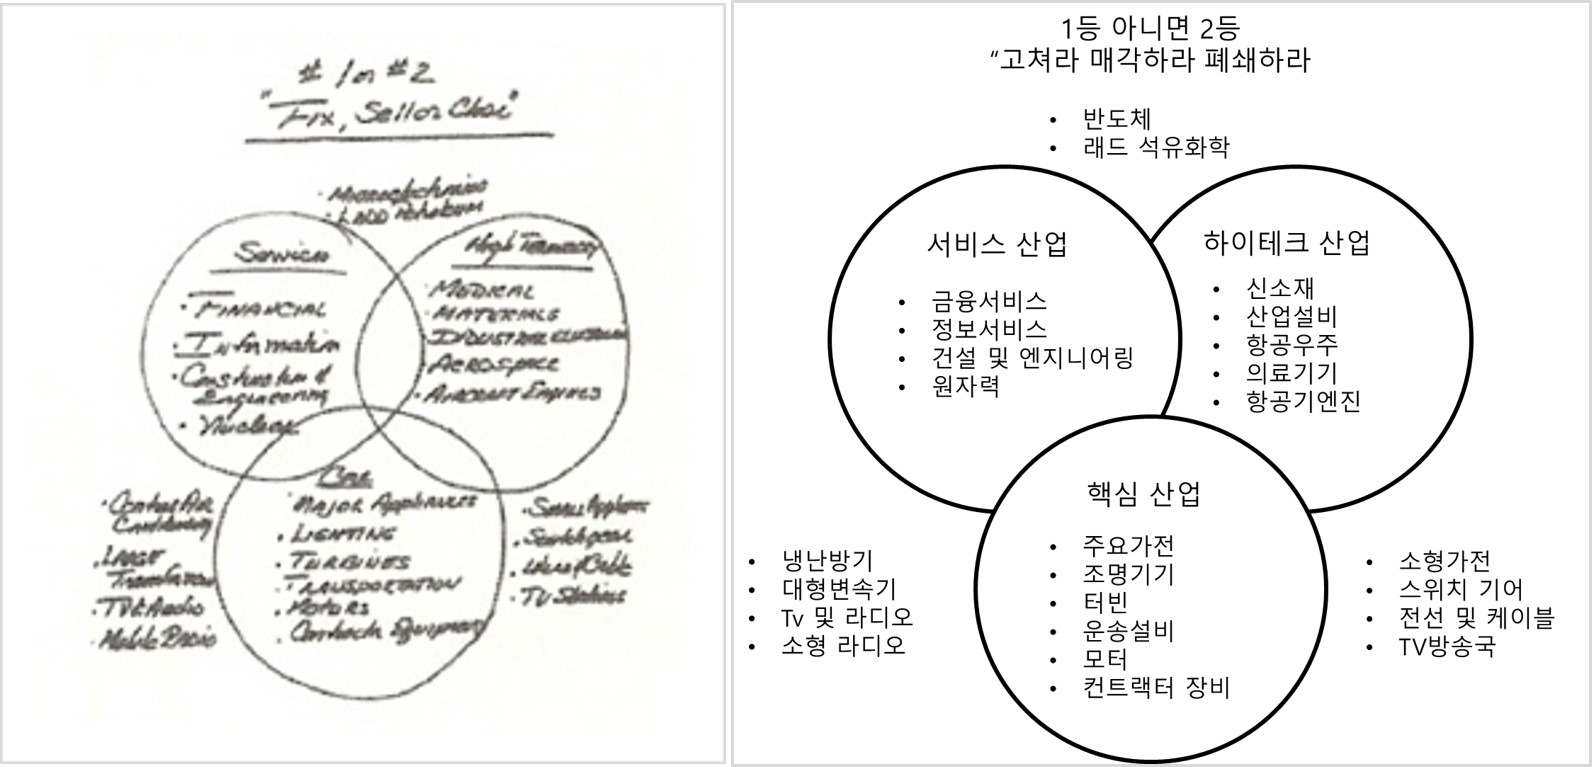 # 1 or #2
"Fix, Sell or Close"
Microelectronics
· LADD Petroleum
Services
· FINANCIAL
· Information
· Construction &
Engineering
· Nuclear
High Technology
· MEDICAL
· MATERIALS
· INDUSTRIAL ELECTRONICS
· AEROSPACE
· AIRCRAFT ENGINES
· Central Air
Conditioning
· LARGE
Transformers
· TV & Audio
· Mobile Radio
Core
MAJOR Appliances
· LIGHTING
· TURBINES
· TRANSPORTATION
· MOTORS
· Contractor Equipment
· Small Appliances
· Switchgear
· Wire & Cable
· TV Stations
1등 아니면 2등
“고쳐라 매각하라 폐쇄하라
• 반도체
• 래드 석유화학
서비스 산업
• 금융서비스
• 정보서비스
• 건설 및 엔지니어링
• 원자력
하이테크 산업
• 신소재
• 산업설비
• 항공우주
• 의료기기
• 항공기엔진
핵심 산업
• 주요가전
• 조명기기
• 터빈
• 운송설비
• 모터
• 컨트랙터 장비
• 냉난방기
• 대형변속기
• Tv 및 라디오
• 소형 라디오
• 소형가전
• 스위치 기어
• 전선 및 케이블
• TV방송국